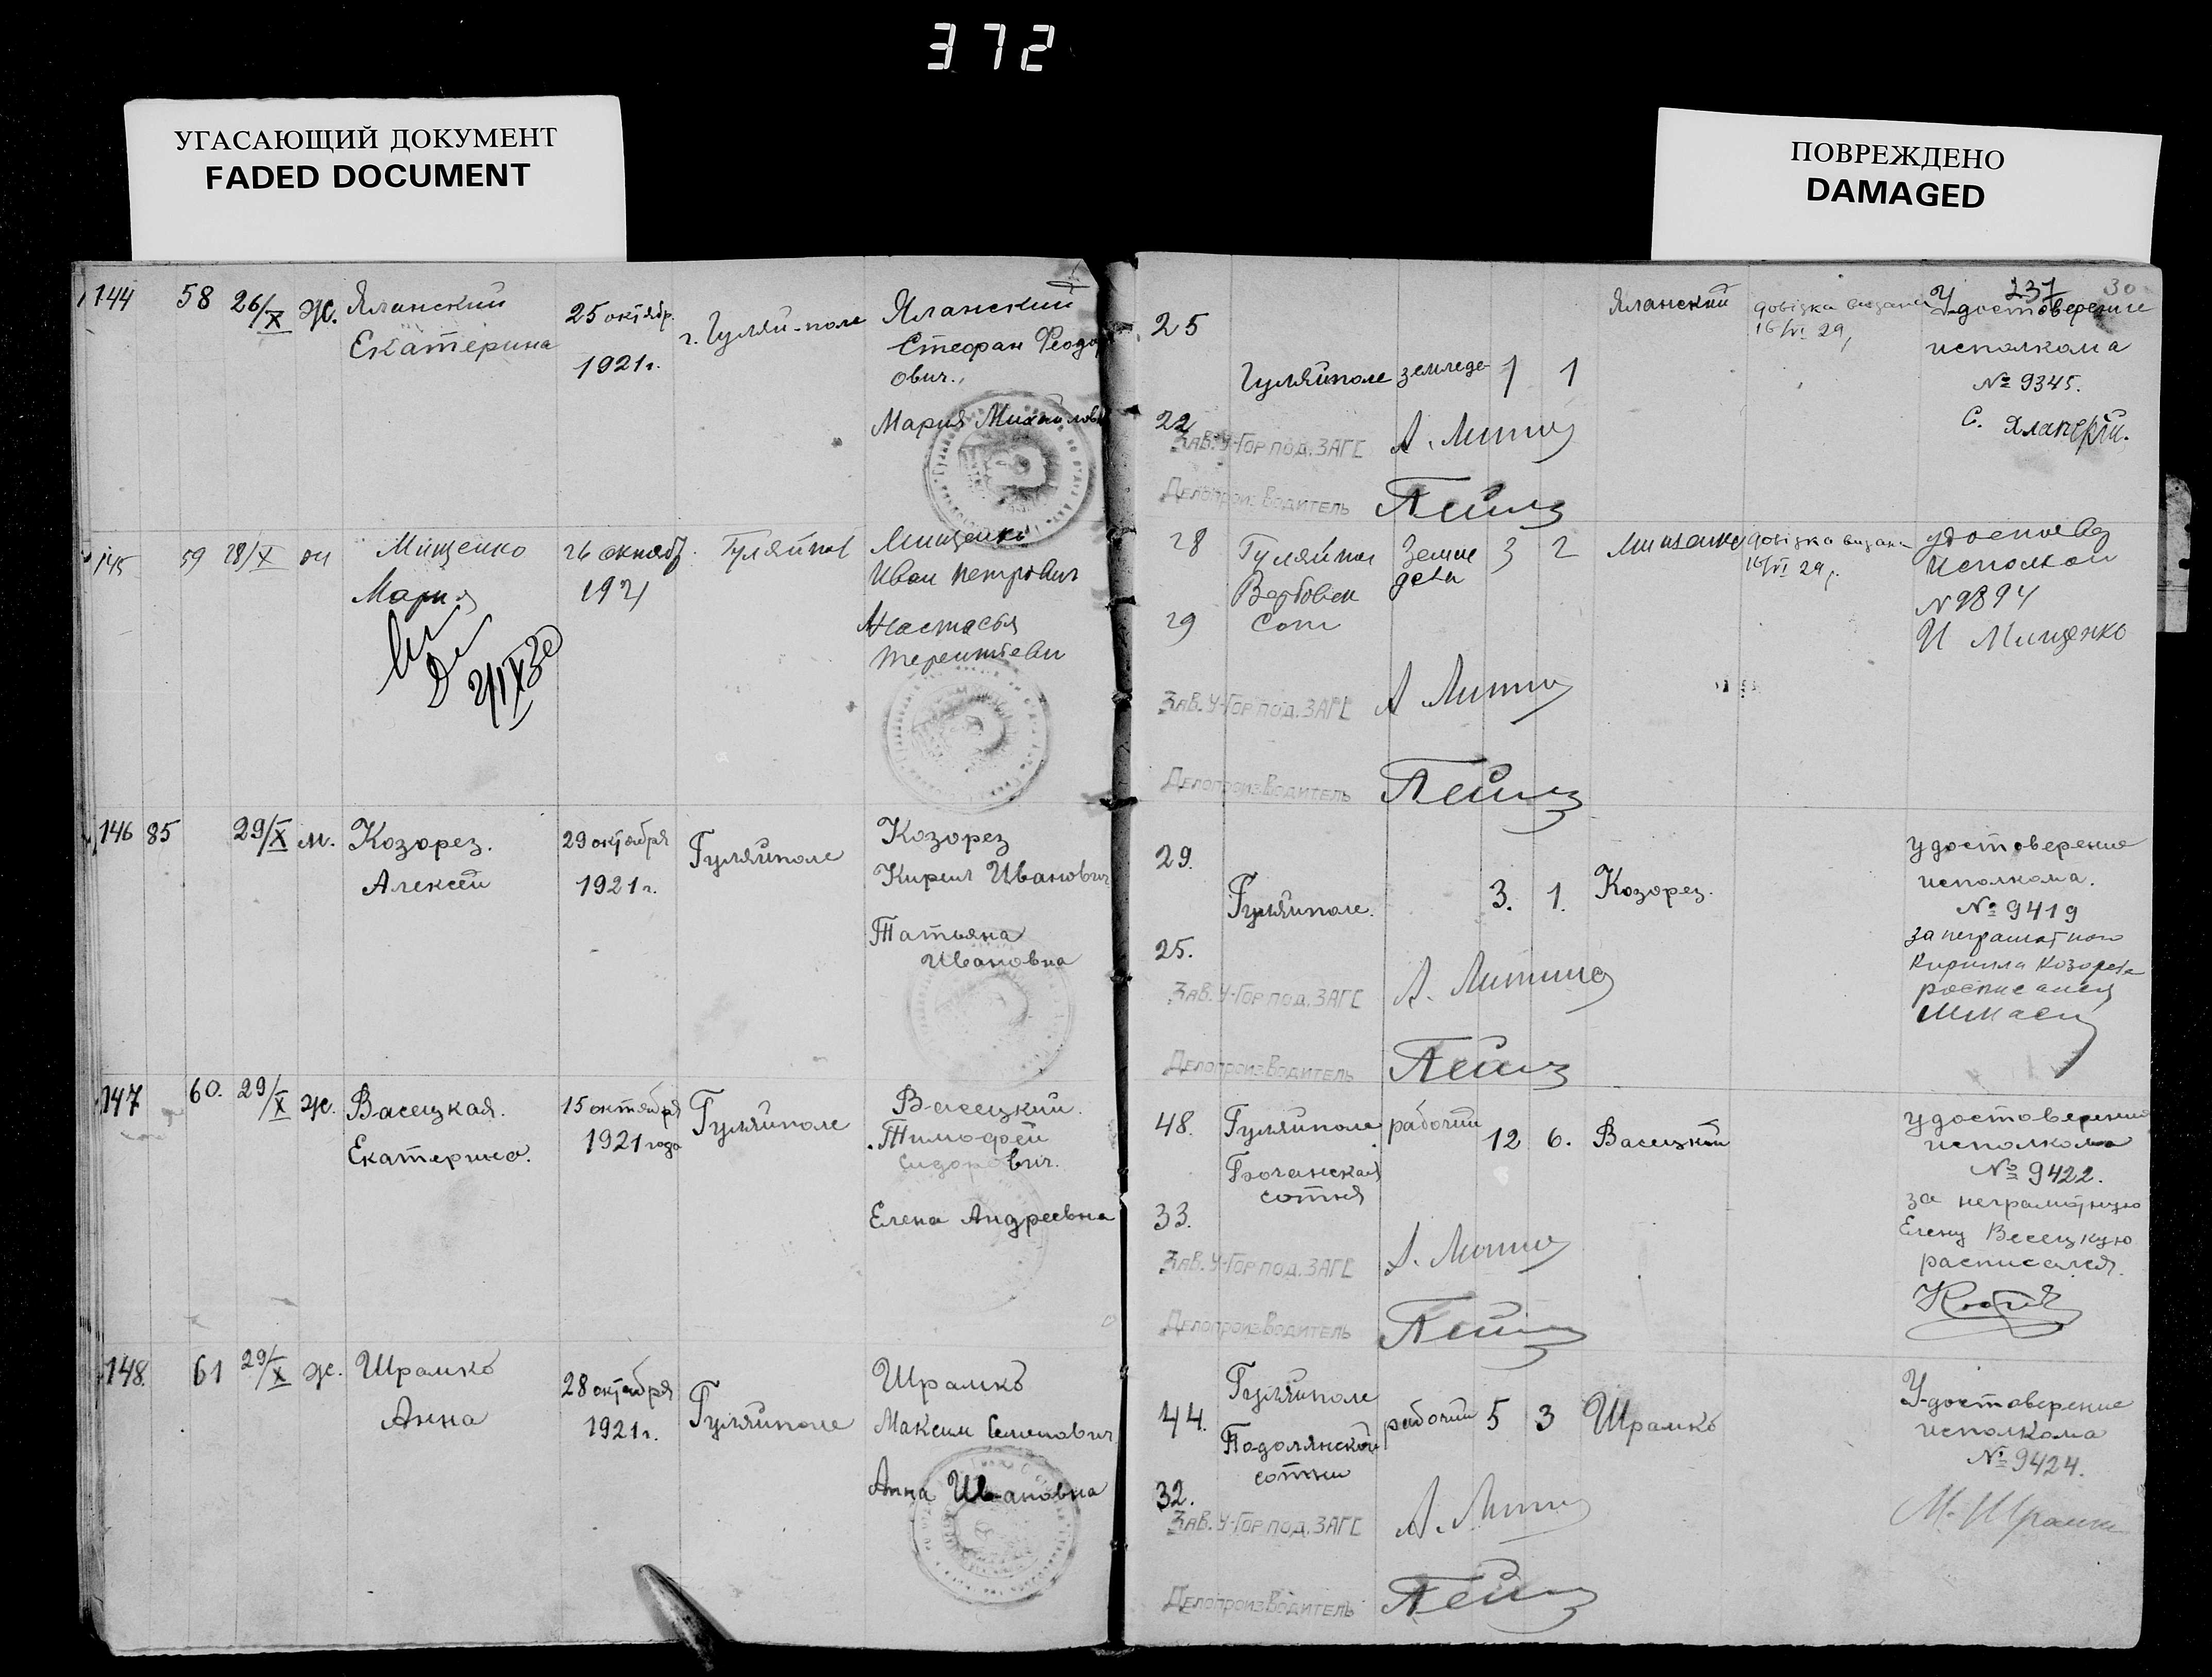 372
УГАСАЮЩИЙ ДОКУМЕНТ
FADED DOCUMENT
ПОВРЕЖДЕНО
DAMAGED
237 30
144 58 26/X ж. Яланский
Екатерина
25 октябр.
1921 г.
г. Гуляй-поле
Яланский
Стефан Феодор
ович.,
Мария Михайловн
25
22
Гуляйполе земледе 1 1
Яланский
довідка видана
16/VI 29,
Удостоверение
исполкома
№ 9345.
С.
Зав. У-Гор под. ЗАГС
Делопроизводитель
145 59 28/X
Мищенко
Мария
26 октяб
1921
Гуляйпол
Мищенко
Иван Петрович
Анастасья
Терентьевн
28
29
Гуляйпол
Вербовск
Сотн
Земле
дел
3 2
Мищенко
довідка видана
16/VI 29 р.
удостовер
Исполком
N 9894
И Мищенко
Зав. У-Гор под. ЗАГС
Делопроизводитель
146 85 29/X м. Козорез.
Алексей
29 октября
1921 г.
Гуляйполе
Козорез
Кирил Иванович
Татьяна
Ивановна
29.
25.
Гуляйполе. 3. 1. Козорез.
удостоверение
исполкома.
№ 9419
за неграмотного
Кирилла Козореза
росписался
Зав. У-Гор под. ЗАГС
Делопроизводитель
147 60. 29/X ж. Васецкая.
Екатерина.
15 октября
1921 года
Гуляйполе
Васецкий.
Тимофей
Сидорович.
Елена Андреевна
48.
33.
Гуляйполе рабочий 12 6. Васецкий
сотня
удостоверение
исполкома
№ 9422.
за неграмотную
Елену Весецкую
расписался.
Зав. У-Гор под. ЗАГС
Делопроизводитель
148. 61 29/X ж. Шрамко
Анна
28 октября
1921 г.
Гуляйполе
Шрамко
Максим Семенович
Анна Ивановна
44.
32.
Гуляйполе
Подолянской
сотни
рабочий 5 3 Шрамко
Удостоверение
исполкома
№ 9424.
М. Шрамко
Зав. У-Гор под. ЗАГС
Делопроизводитель